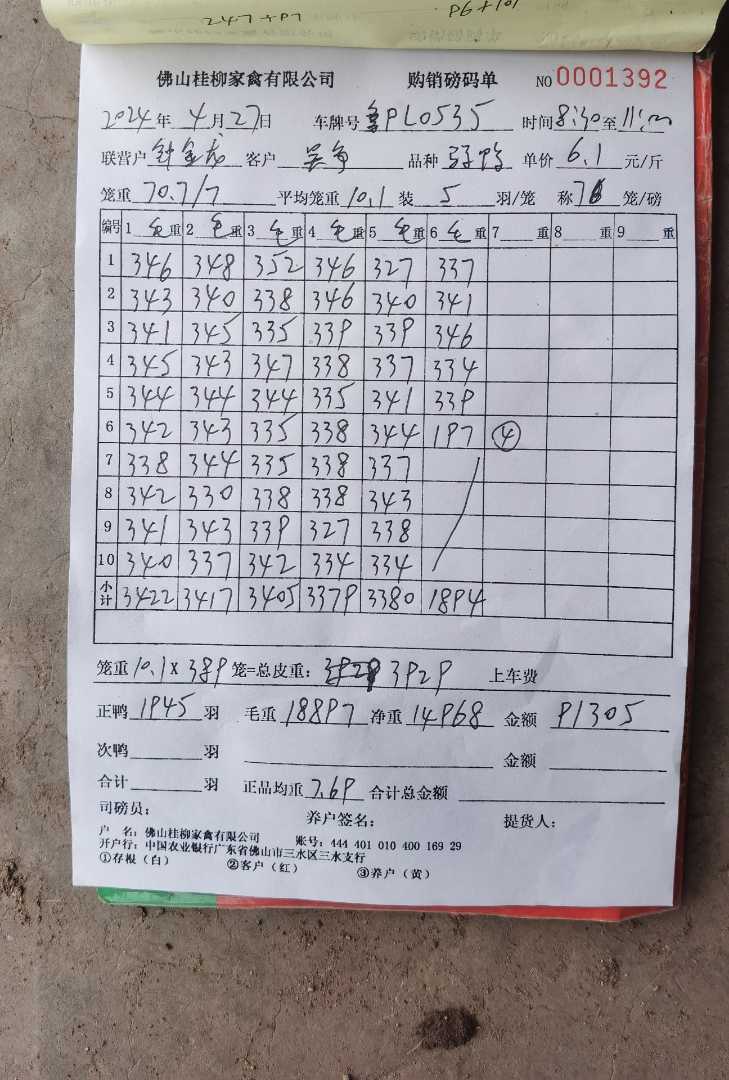 佛山桂柳家禽有限公司 购销磅码单 NO 0001392
2024年 4月27日 车牌号 PL0535 时间8:30至11:00
联营户 客户 品种 单价 6.1 元/斤
笼重 70.7/7 平均笼重 10.1 装 5 羽/笼 称 笼/磅
编号 1 毛重 2 毛重 3 毛重 4 毛重 5 毛重 6 毛重 7 重 8 重 9 重
1 346 348 352 346 327 337
2 343 340 338 346 340 341
3 341 345 335 339 339 346
4 345 343 347 338 337 334
5 344 344 344 335 341 339
6 342 343 335 338 344 197 ④
7 338 344 335 338 337
8 342 330 338 338 343
9 341 343 339 327 338
10 340 337 342 334 334
小计 3422 3417 3405 3379 3380 1894
笼重 10.1 x 389 笼=总皮重: 3929 上车费
正鸭 1945 羽 毛重 18897 净重 14968 金额 91305
次鸭 羽 金额
合计 羽 正品均重 7.69 合计总金额
司磅员: 养户签名: 提货人:
户 名: 佛山桂柳家禽有限公司 账号: 444 401 010 400 169 29
开户行: 中国农业银行广东省佛山市三水区三水支行
①存根(白) ②客户(红) ③养户(黄)